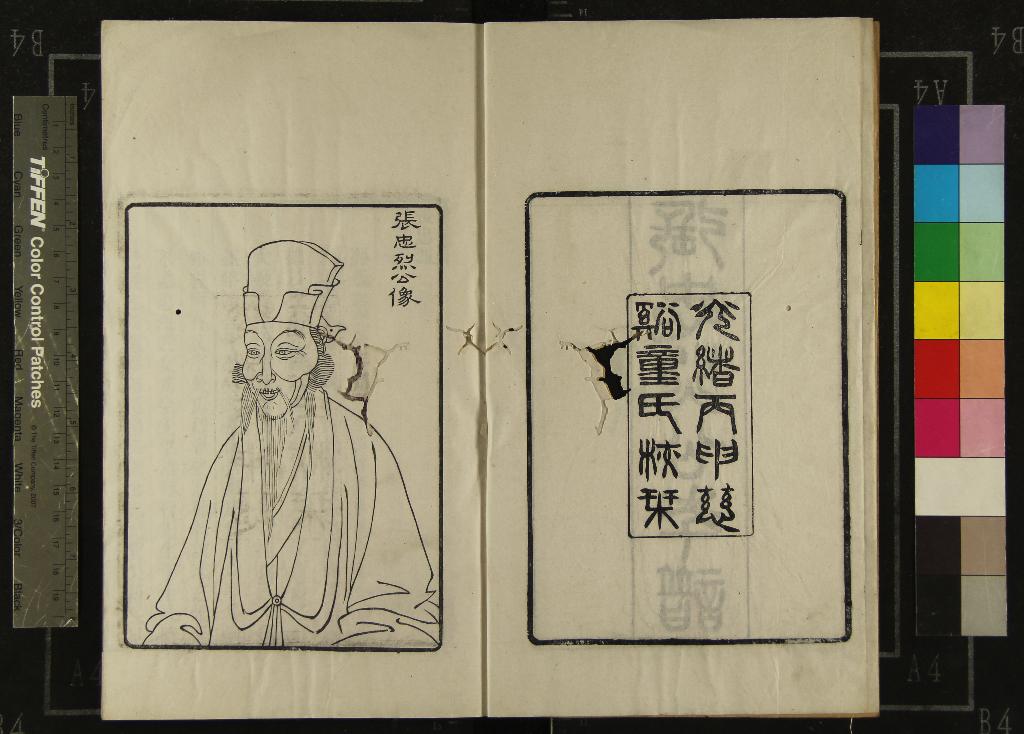 光緒丙申慈
谿童氏校栞
張忠烈公像
TIFFEN Color Control Patches
© The Tiffen Company, 2007
Centimetres
Inches
Blue Cyan Green Yellow Red Magenta White 3/Color Black
B4
B4
A4
A4
A4
A4
B4
B4